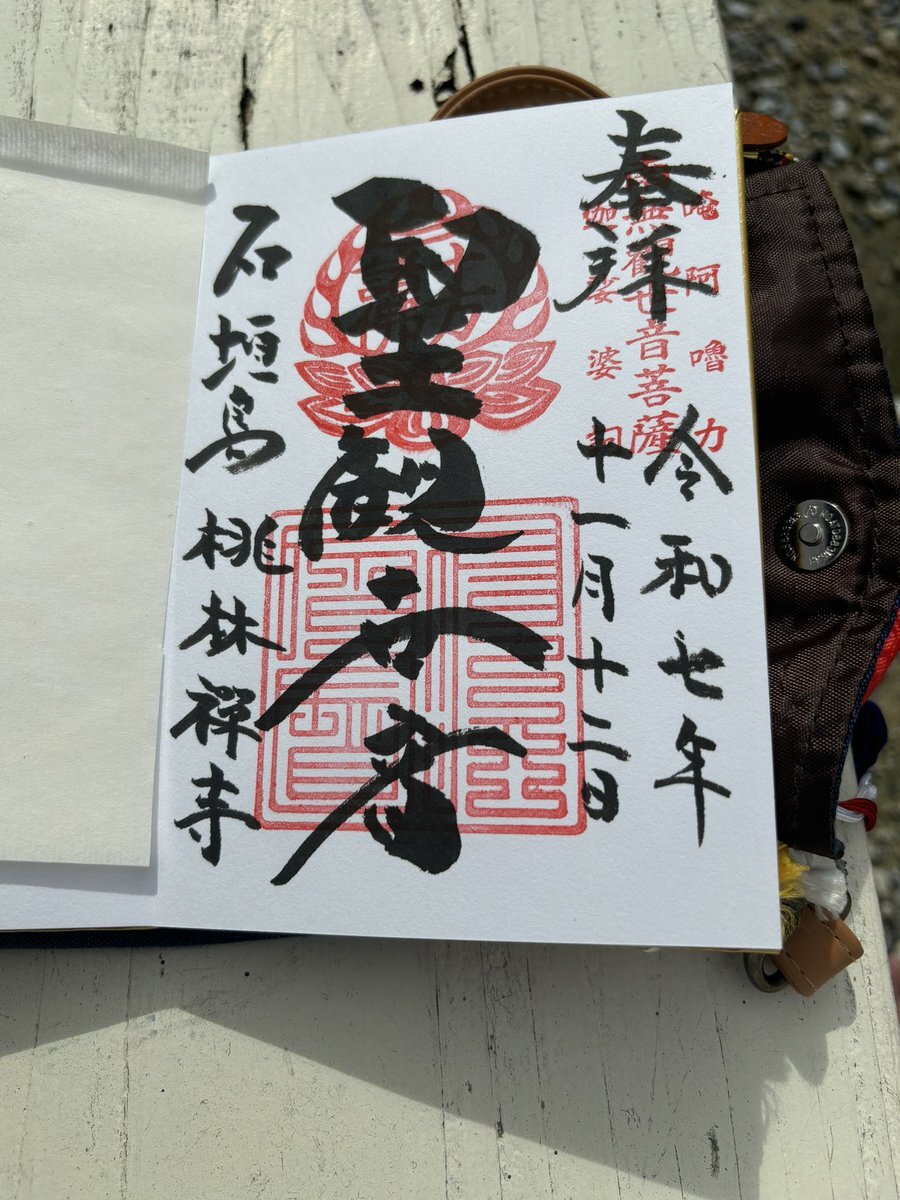 奉拝
唵阿嚕力
南無観世音菩薩
伽娑婆訶
令和七年
十一月十二日
聖観世音
石垣島 桃林禅寺